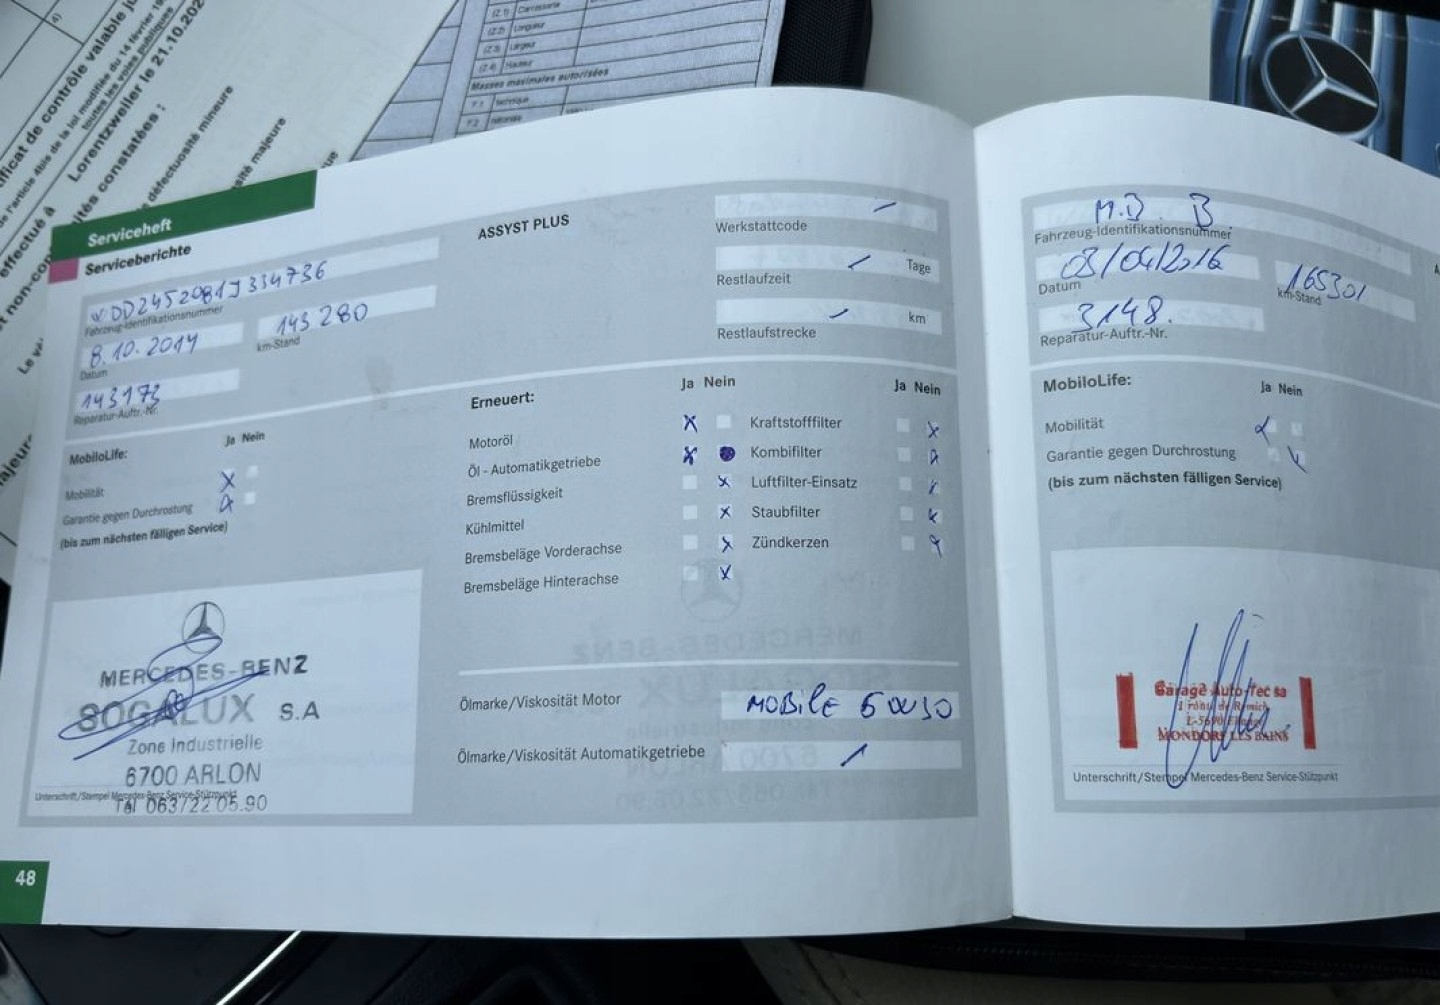 ificat de contrôle valable ju
e l'article 4bis de la loi modifiée du 14 février 19
toutes les voies publiques
effectué à Lorentzweiler le 21.10.202
ités constatées :
défectuosité mineure
sité majeure
(Z 1) Carrosserie
(Z 2) Longueur
(Z 3) Largeur
(Z 4) Hauteur
Masses maximales autorisées
F.1 technique
F.2 nationale
Serviceheft
Serviceberichte
WDD2452081J334736
Fahrzeug-Identifikationsnummer
8.10.2014
Datum
143 280
km-Stand
143173
Reparatur-Auftr.-Nr.
ASSYST PLUS
Werkstattcode
Tage
Restlaufzeit
km
Restlaufstrecke
MobiloLife:
Ja Nein
Mobilität
Garantie gegen Durchrostung
(bis zum nächsten fälligen Service)
Erneuert:
Ja Nein
Motoröl
Öl - Automatikgetriebe
Bremsflüssigkeit
Kühlmittel
Bremsbeläge Vorderachse
Bremsbeläge Hinterachse
Ja Nein
Kraftstofffilter
Kombifilter
Luftfilter-Einsatz
Staubfilter
Zündkerzen
MERCEDES-BENZ
SOGALUX S.A
Zone Industrielle
6700 ARLON
Tél 063/22.05.90
Unterschrift/Stempel Mercedes-Benz Service-Stützpunkt
Ölmarke/Viskosität Motor
MOBILE 5W30
Ölmarke/Viskosität Automatikgetriebe
48
M.B. B
Fahrzeug-Identifikationsnummer
03/04/2016
Datum
165301
km-Stand
3148.
Reparatur-Auftr.-Nr.
MobiloLife:
Ja Nein
Mobilität
Garantie gegen Durchrostung
(bis zum nächsten fälligen Service)
Garage Auto-Tec sa
MONDORF LES BAINS
Unterschrift/Stempel Mercedes-Benz Service-Stützpunkt